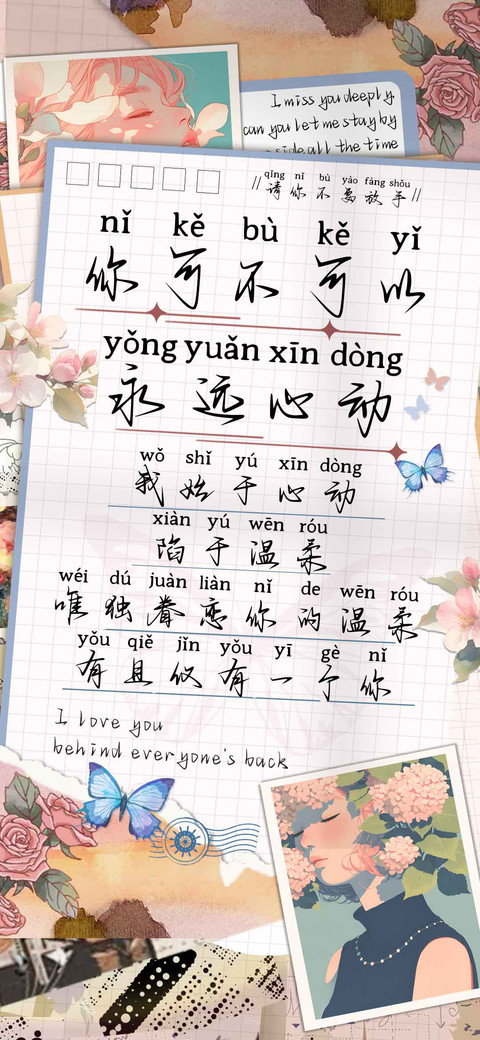 I miss you deeply
can you let me stay by
side all the time
qǐng nǐ bù yào fàng shǒu
//请你不要放手//
nǐ kě bù kě yǐ
你可不可以
yǒng yuǎn xīn dòng
永远心动
wǒ shǐ yú xīn dòng
我始于心动
xiàn yú wēn róu
陷于温柔
wéi dú juàn liàn nǐ de wēn róu
唯独眷恋你的温柔
yǒu qiě jǐn yǒu yī gè nǐ
有且仅有一个你
I love you
behind everyone's back